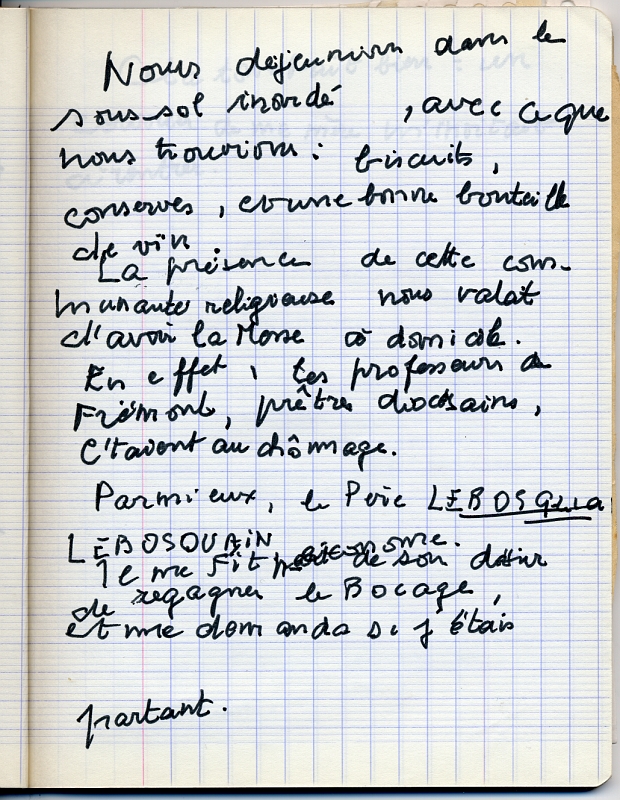 Nous dejeunions dans le
sous-sol inondé, avec ce que
nous trouvions : biscuits,
conserves, et une bonne bouteille
de vin.
La présence de cette com-
munauté religieuse nous valat
d'avoir la Messe à domicile.
En effet, les professeurs de
Frémont, prêtres diocésains,
étaient au chômage.
Parmi eux, le Père LEBOSQUA
LEBOSQUAIN économe.
Il me fit part de son désir
de regagner le Bocage,
et me demanda si j'étais
partant.